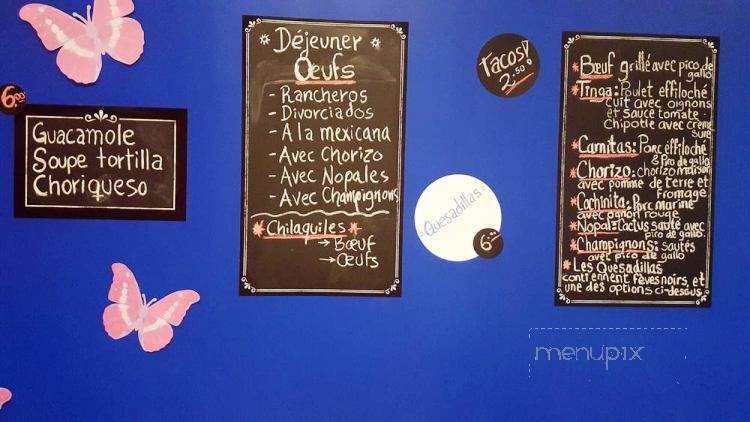 6.00
Guacamole
Soupe tortilla
Choriqueso
Déjeuner
Œufs
- Rancheros
- Divorciados
- A la mexicana
- Avec Chorizo
- Avec Nopales
- Avec Champignons
* Chilaquiles *
→ Bœuf
→ Œufs
Tacos!
2.50!
=Quesadillas=
6.00
* Bœuf grillé avec pico de
gallo
* Tinga: Poulet effiloché
cuit avec oignons
et sauce tomate-
Chipotle avec creme
sure
* Carnitas: Porc effiloché
& Pico de gallo
* Chorizo: chorizo maison
avec pomme de terre et
Fromage
* Cochinita: Porc mariné
avec oignon rouge
* Nopal: Cactus sauté avec
pico de gallo.
* Champignons: sautés
avec pico de gallo
* Les Quesadillas
contiennent fèves noirs, et
une des options ci-dessus
menupix